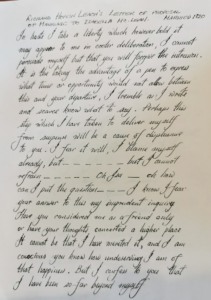 Richard Henry Leigh's Letter of proposal March 1820
of Marriage to
In haste I take a liberty which however bold it
may appear to me in cooler deliberation, I cannot
persuade myself but that you will forgive this intrusion.
It is the taking the advantage of a pen to express
what time or opportunity would not allow between
this and your departure. I tremble as I write
and scarce know what to say. Perhaps this
step which I have taken to deliver myself
from anguish will be a cause of
to you. I fear it will, I blame myself
already, but - - - - - - - but I cannot
refrain - - - - Oh fear - - oh how
can I put the question - - - - I know & fear
your answer to this my impudent inquiry
Have you considered me as a friend only
or have your thoughts connected a higher place
It cannot be that I have merited it, and I am
conscious you know how undeserving I am of
that happiness. But I confess to you that
I have been so far beyond myself